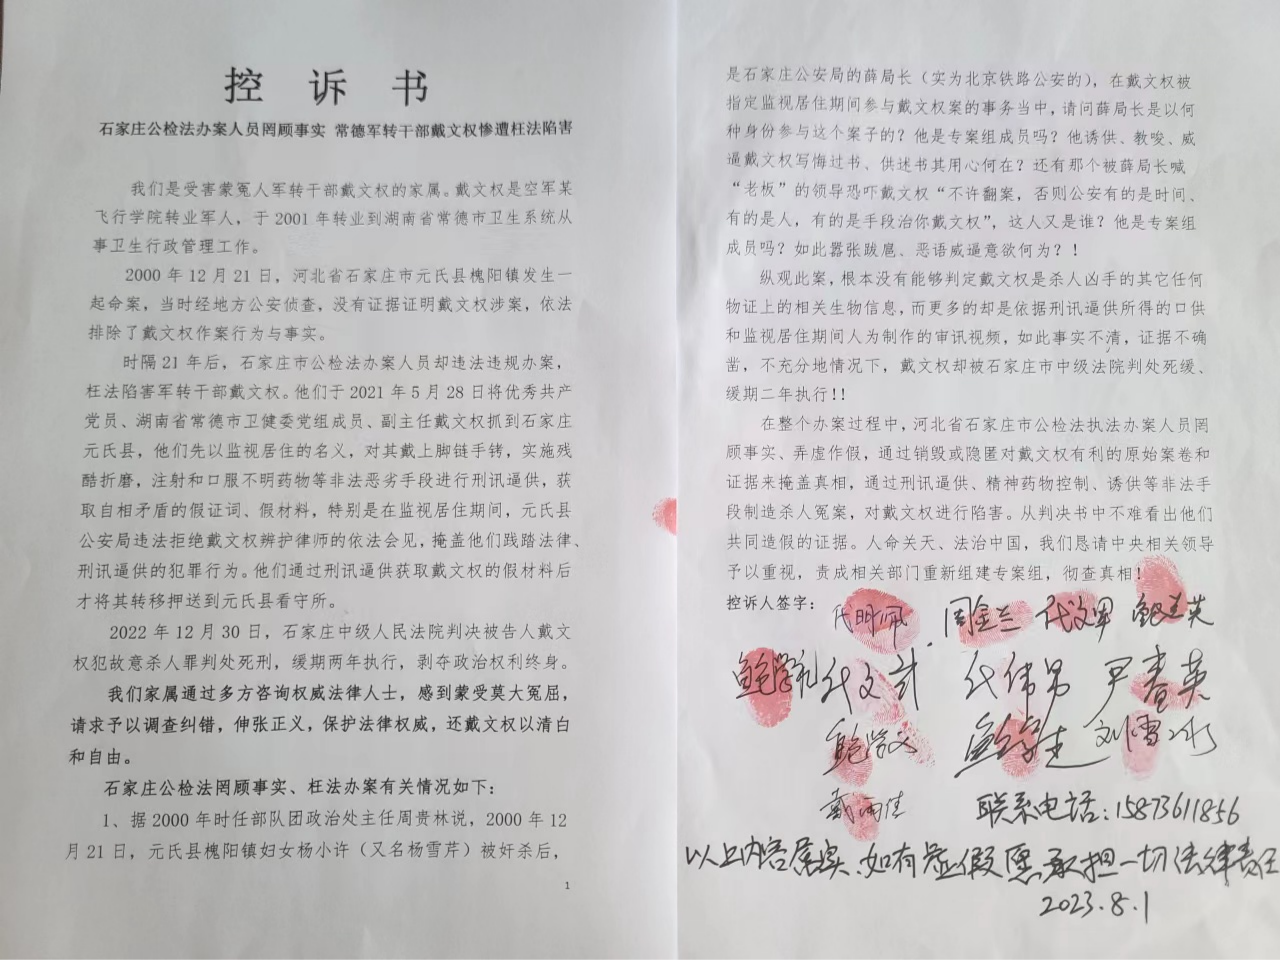 控 诉 书
石家庄公检法办案人员罔顾事实 常德军转干部戴文权惨遭枉法陷害
我们是受害蒙冤人军转干部戴文权的家属。戴文权是空军某
飞行学院转业军人，于 2001 年转业到湖南省常德市卫生系统从
事卫生行政管理工作。
2000 年 12 月 21 日，河北省石家庄市元氏县槐阳镇发生一
起命案，当时经地方公安侦查，没有证据证明戴文权涉案，依法
排除了戴文权作案行为与事实。
时隔 21 年后，石家庄市公检法办案人员却违法违规办案，
枉法陷害军转干部戴文权。他们于 2021 年 5 月 28 日将优秀共产
党员、湖南省常德市卫健委党组成员、副主任戴文权抓到石家庄
元氏县，他们先以监视居住的名义，对其戴上脚链手铐，实施残
酷折磨，注射和口服不明药物等非法恶劣手段进行刑讯逼供，获
取自相矛盾的假证词、假材料，特别是在监视居住期间，元氏县
公安局违法拒绝戴文权辨护律师的依法会见，掩盖他们践踏法律、
刑讯逼供的犯罪行为。他们通过刑讯逼供获取戴文权的假材料后
才将其转移押送到元氏县看守所。
2022 年 12 月 30 日，石家庄中级人民法院判决被告人戴文
权犯故意杀人罪判处死刑，缓期两年执行，剥夺政治权利终身。
我们家属通过多方咨询权威法律人士，感到蒙受莫大冤屈，
请求予以调查纠错，伸张正义，保护法律权威，还戴文权以清白
和自由。
石家庄公检法罔顾事实、枉法办案有关情况如下：
1、据 2000 年时任部队团政治处主任周贵林说，2000 年 12
月 21 日，元氏县槐阳镇妇女杨小许（又名杨雪芹）被奸杀后，
1
是石家庄公安局的薛局长（实为北京铁路公安的），在戴文权被
指定监视居住期间参与戴文权案的事务当中，请问薛局长是以何
种身份参与这个案子的？他是专案组成员吗？他诱供、教唆、威
逼戴文权写悔过书、供述书其用心何在？还有那个被薛局长喊
“老板”的领导恐吓戴文权“不许翻案，否则公安有的是时间、
有的是人，有的是手段治你戴文权”，这人又是谁？他是专案组
成员吗？如此嚣张跋扈、恶语威逼意欲何为？！
纵观此案，根本没有能够判定戴文权是杀人凶手的其它任何
物证上的相关生物信息，而更多的却是依据刑讯逼供所得的口供
和监视居住期间人为制作的审讯视频，如此事实不清，证据不确
凿，不充分地情况下，戴文权却被石家庄市中级法院判处死缓、
缓期二年执行！！
在整个办案过程中，河北省石家庄市公检法执法办案人员罔
顾事实、弄虚作假，通过销毁或隐匿对戴文权有利的原始案卷和
证据来掩盖真相，通过刑讯逼供、精神药物控制、诱供等非法手
段制造杀人冤案，对戴文权进行陷害。从判决书中不难看出他们
共同造假的证据。人命关天、法治中国，我们恳请中央相关领导
予以重视，责成相关部门重新组建专案组，彻查真相！
控诉人签字：
代明佩 周金兰 代文军 鲍兰英
鲍学礼 代文武 代伟男 尹春英
鲍学义 鲍学志 刘雪冰
戴雨佳 联系电话：15873611856
以上内容属实、如有虚假愿承担一切法律责任
2023.8.1